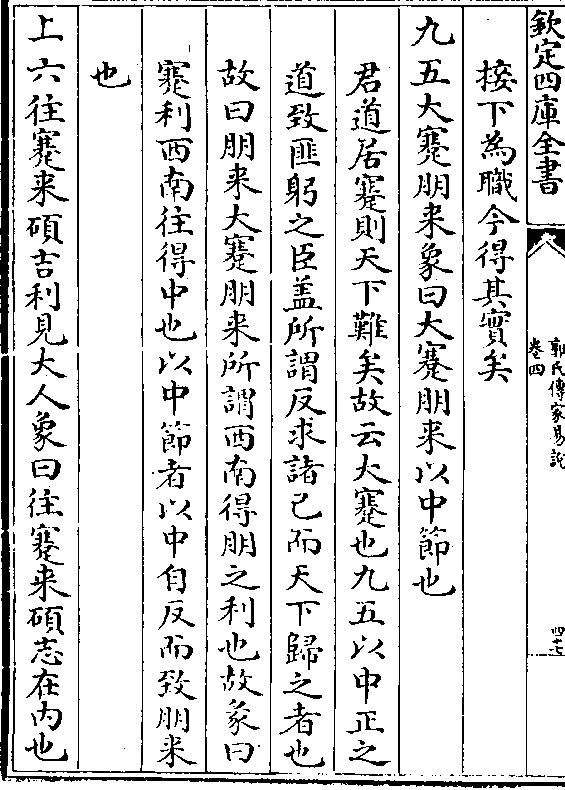 欽定四庫全書
郭氏傳家易説
卷四
四十七
接下為職今得其實矣
九五大蹇朋来象曰大蹇朋来以中節也
君道居蹇則天下難矣故云大蹇也九五以中正之
道致匪躬之臣盖所謂反求諸己而天下歸之者也
故曰朋来大蹇朋来所謂西南得朋之利也故彖曰
蹇利西南往得中也以中節者以中自反而致朋来
也
上六往蹇来碩吉利見大人象曰往蹇来碩志在内也